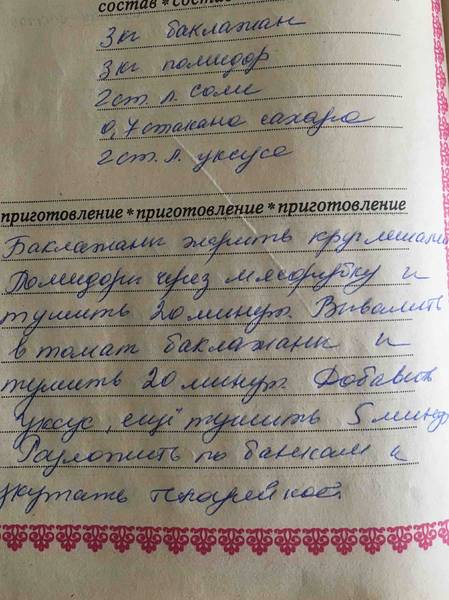 состав * соста
3 кг баклажан
3 кг помидор
2 ст. л. соли
0,7 стакана сахара
2 ст. л. уксуса
приготовление * приготовление * приготовление
Баклажаны жарить кругляшами
Помидоры через мясорубку и
тушить 20 минут. Вывалить
в томат баклажаны и
тушить 20 минут. Добавив
уксус, ещё тушить 5 минут
Разложить по банкам и
укутать телогрейкой.